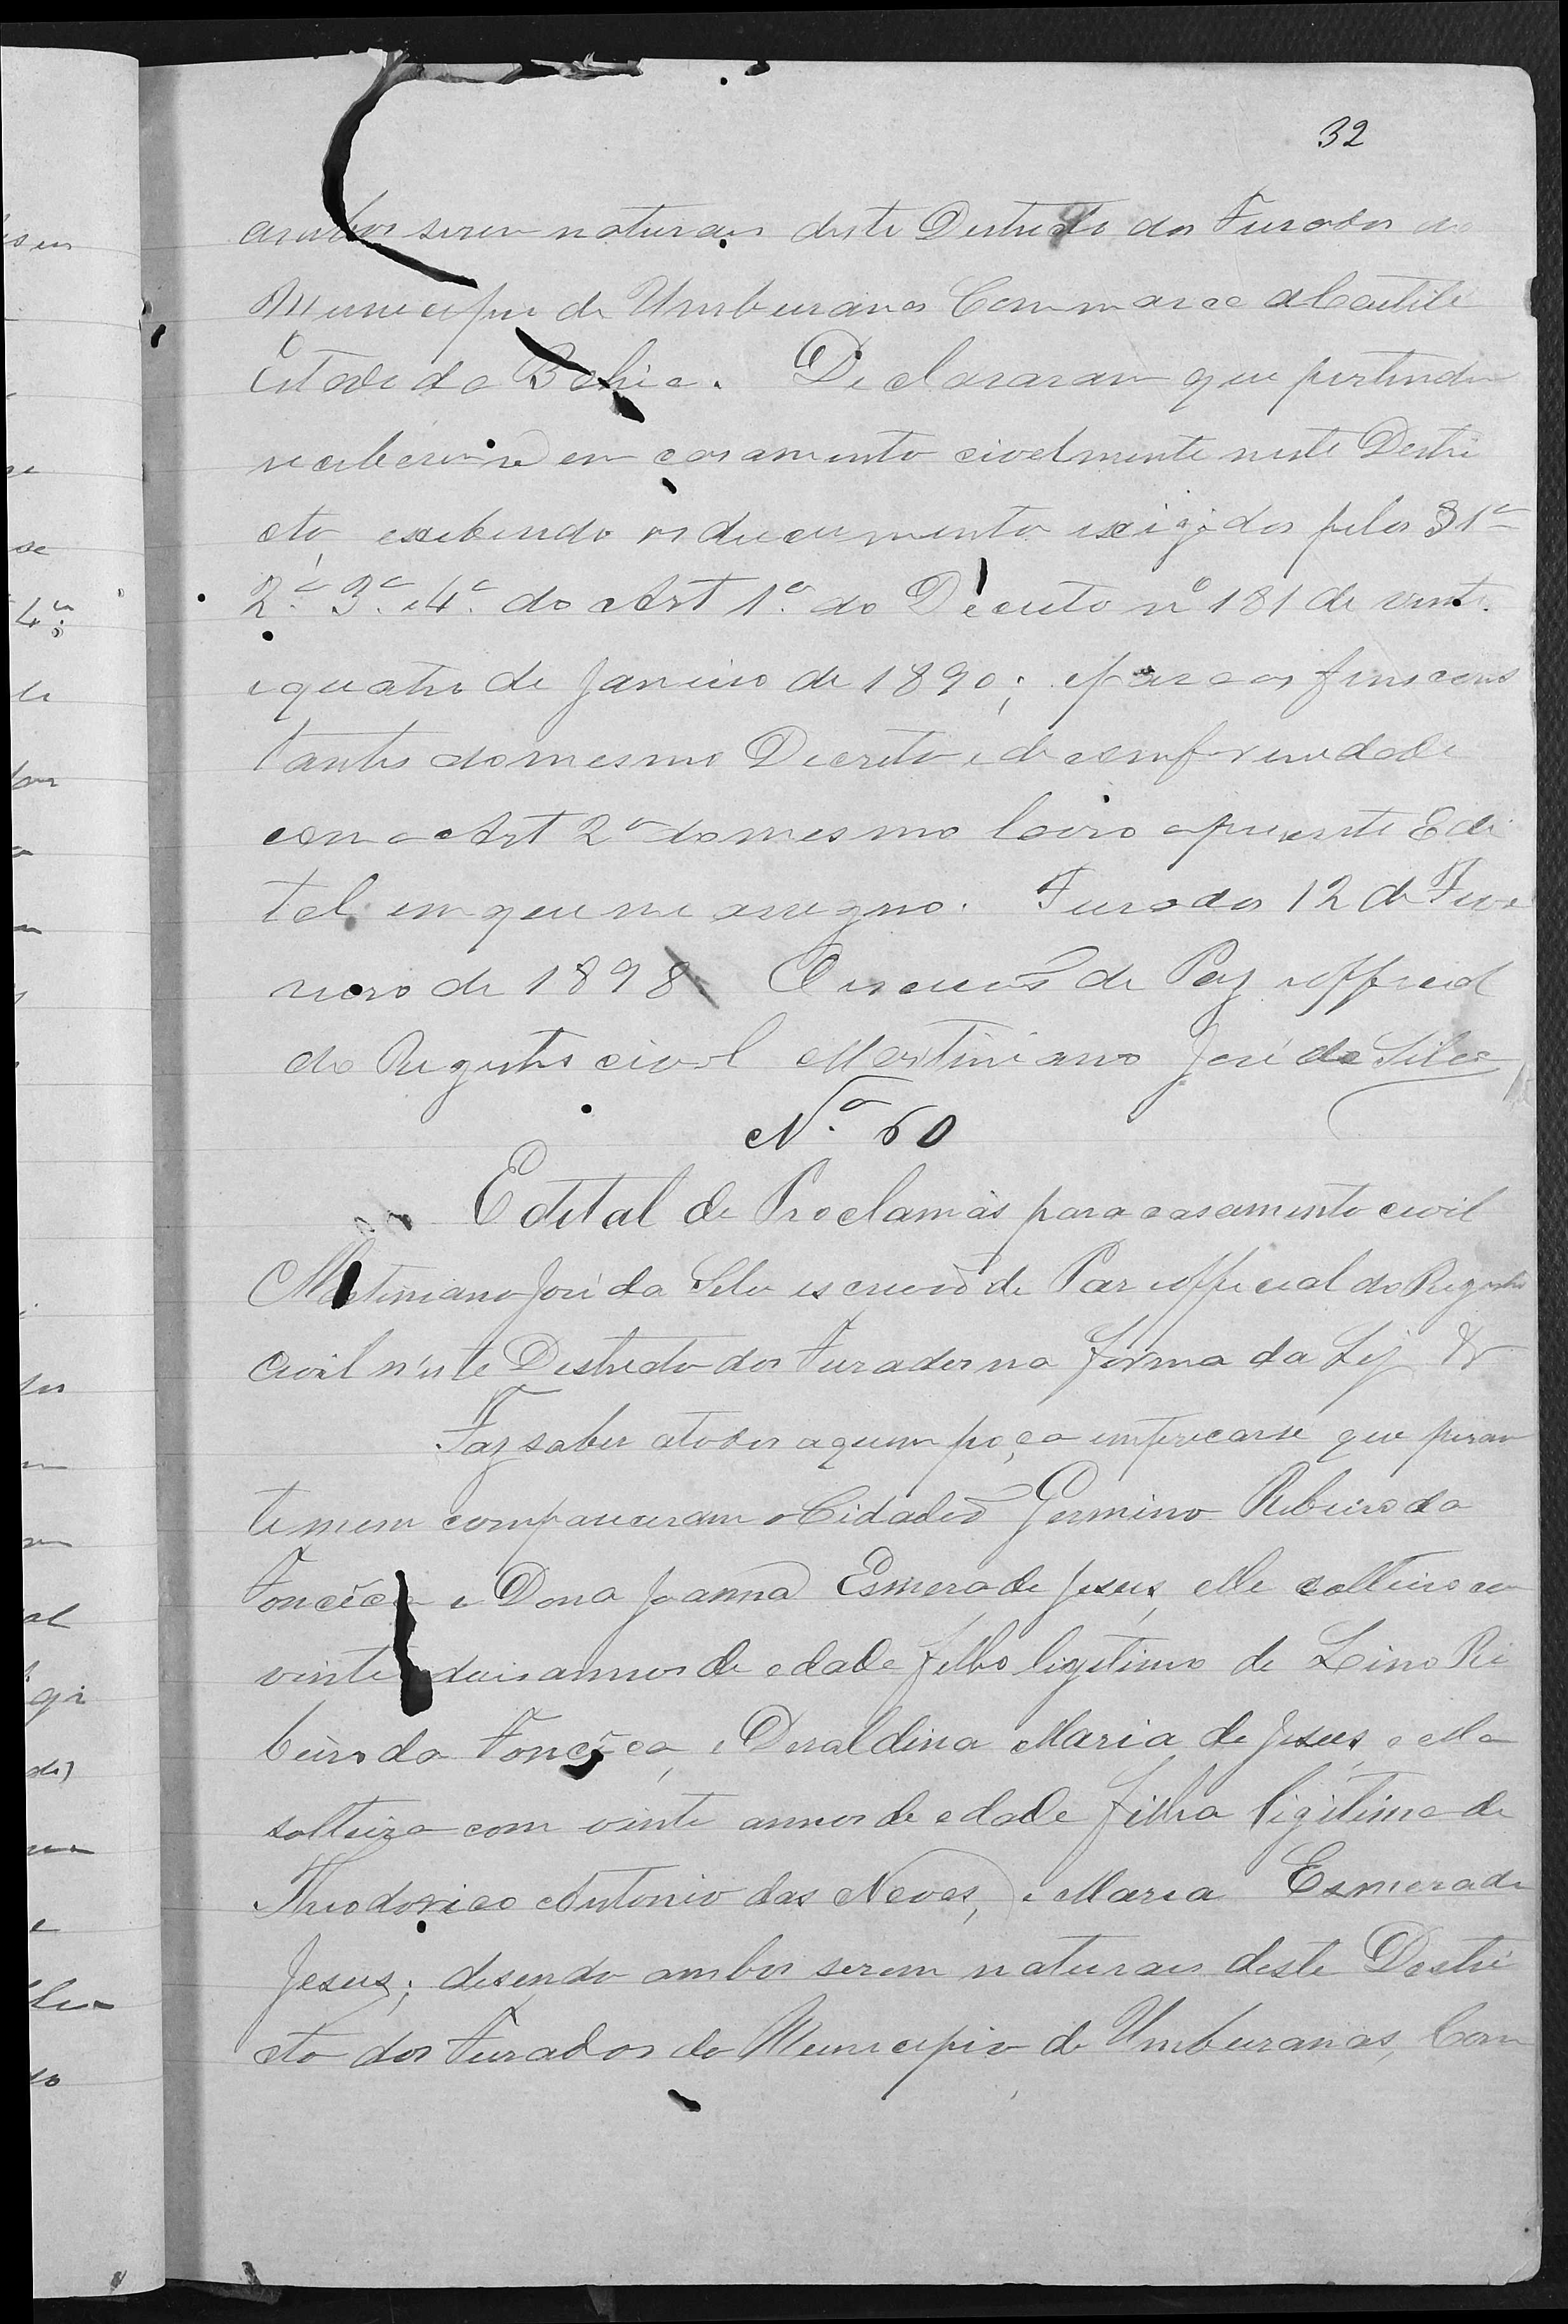 32
ambos serem naturais deste Destricto dos Furados do
Municipio de Umburanas Commarca de Caetité
Estado da Bahia. Declararam que pertendem
receberem-se em casamento civelmente neste Destri
cto, exebindo os ducumentos exigidos pelos § 1º
2º 3º e 4º do Art 1º do Decreto nº 181 de vinte
e quatro de Janeiro de 1890; e para os fins cons
tantes do mesmo Decreto e de comformedade
com o Art 2º do mesmo lavro o presente Edi
tal em que me assigno. Furados 12 de Feve
reiro de 1898 O Escrivão de Paz e official
do Registro civil Martiniano José da Silva
Nº 60
Edital de Proclamas para casamento civil
Martiniano José da Silva escrivão de Paz e official do Registro
Civil n'este Destricto dos Furados na forma da Lej &
Faz saber a todos a quem poça enterecarse que peran
te mim compareceram o Cidadão Germino Ribeiro da
Foncêca e Dona Joanna Esmera de Jesus, elle solteiro com
vinte dois annos de edade filho ligitimo de Lino Ri
beiro da Foncêca, e Deraldina Maria de Jesus, e ella
solteira com vinte annos de edade filha ligitima de
Theodorico Antonio das Neves, e Maria Esmera de
Jesus; disendo ambos serem naturais deste Destri
cto dos Furados do Municipio de Umburanas, Com